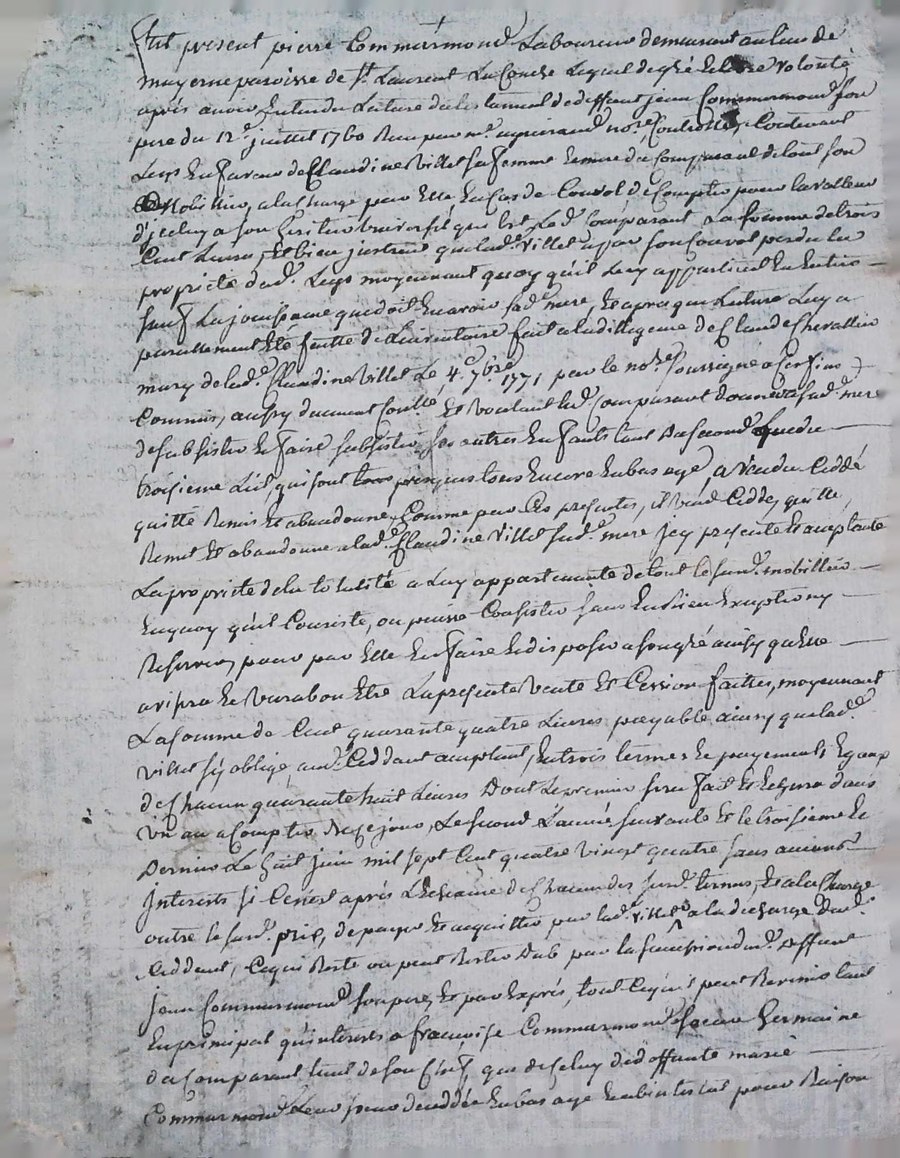 fut present pierre Commarmond Laboureur demeurant au lieu de
mayerne paroisse de St. Laurent La Conche Lequel de gré Et Libre volonté
après avoir Entendu Lecture du testament de deffunt jean Commarmond son
pere du 12e juillet 1760 Reçu par me. nore. Controllé, Contenant
Legs En faveur de Claudine Villet sa femme Et mere du Comparant de tout son
Mobilier, a la charge par Elle En Cas de Convol de Compter pour la valleur
d'jceluy a son heritier universel qui Est Led. Comparant La somme de trois
Cent Livres, Et bien jnstruit que lad. Villet a par son Convol perdu la
proprieté dud. Legs moyennant quoy qu'il Luy appartient En Entier
sauf La jouissance que doit En avoir sad. mere, Et apres que Lecture Luy a
pareillement Eté faitte de L'inventaire fait a la dilligence de Claude Chevallier
mary de lad. Claudine Villet Le 4e. 7bre. 1771 par le nore. soussigné a
Commis, aussy duement Controllé, Et voulant led. Comparant donner a sad. mere
de subsister Et faire subsister ses autres Enfants tant du second que du
troisieme Lit, qui sont tous Encore En bas age, a vendu Ceddé
quitté Remis Et abandonné, Comme par Ces presentes, il vend Cedde, quitte,
Remet Et abandonne a lad. Claudine Villet sad. mere jcy presente Et acceptante
La proprieté de la totalité a Luy appartenante de tout le susd. mobillier
En quoy qu'il Consiste, ou puisse Consister sans En Rien Excepter ny
Reserver, pour par Elle En faire Et disposer a son gré ainsy qu'Elle
avisera Et verra bon Etre La presente vente Et Cession faittes, moyennant
La somme de Cent quarante quatre Livres payable ainsy que lad.
Villet s'y oblige, aud. Ceddant acceptant, En trois termes Et payements Egaux
de Chacun quarante huit Livres Dont Le premier sera fait Et Echera dans
un an a Compter de ce jour, Le second L'année suivante Et le troisieme Et
Dernier Le huit juin mil sept Cent quatre vingt quatre sans aucuns
jnterets si Ce n'est après L'Echeance de Chacun des susd. termes, Et a la Charge
outre le susd. prix, de payer Et acquitter par lad. Villet a la decharge dud.
Ceddant, Ce qui Reste ou peut Rester Dub par la succession dud. deffunt
jean Commarmond son pere, Et par Exprés, tout Ce qui peut Revenir tant
En principal qu'interets a françoise Commarmond soeur Germaine
du Comparant tant de son Chef, que de Celuy de deffunte marie
Commarmond Leur soeur deceddée En bas age Et ab intestat pour Raison